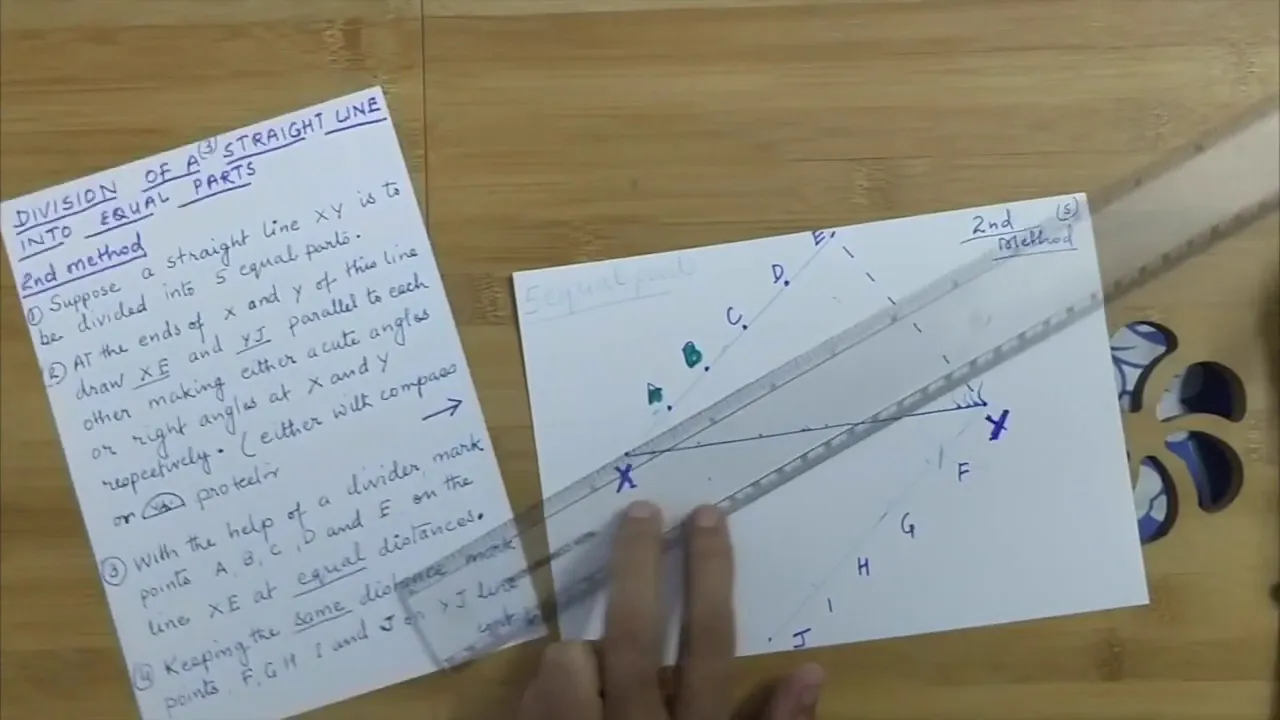 DIVISION OF A (3) STRAIGHT LINE
INTO EQUAL PARTS
2nd method
① Suppose a straight line XY is to
be divided into 5 equal parts.
② AT the ends of X and Y of this line
draw XE and YJ parallel to each
other making either acute angles
or right angles at X and Y
respectively. (either with compass
or protector
③ With the help of a divider, mark
points A, B, C, D and E on the
line XE at equal distances.
④ Keeping the same distance mark
points F, G H I and J on YJ line
5 equal parts
2nd (5)
Method
E
D
C
B
A
X
Y
F
G
H
I
J